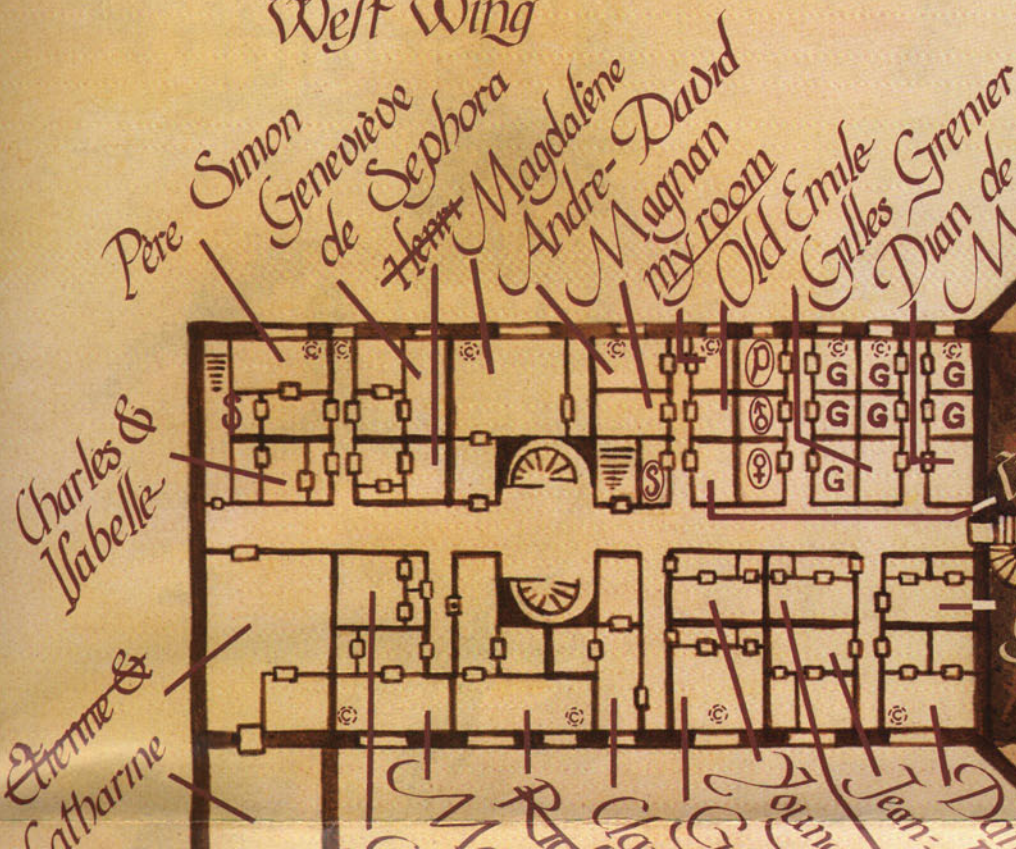 West Wing
Père Simon
Geneviève
de Sephora
Henri
Magdalène
Andre-David
Magnan
my room
Old Emile
Gilles Grenier
Dian de
Charles &
Isabelle
Etienne &
Catharine
C C C C C C C C
P G G G
S ♂ G G G
S ♀ G
C C C C
Jean-